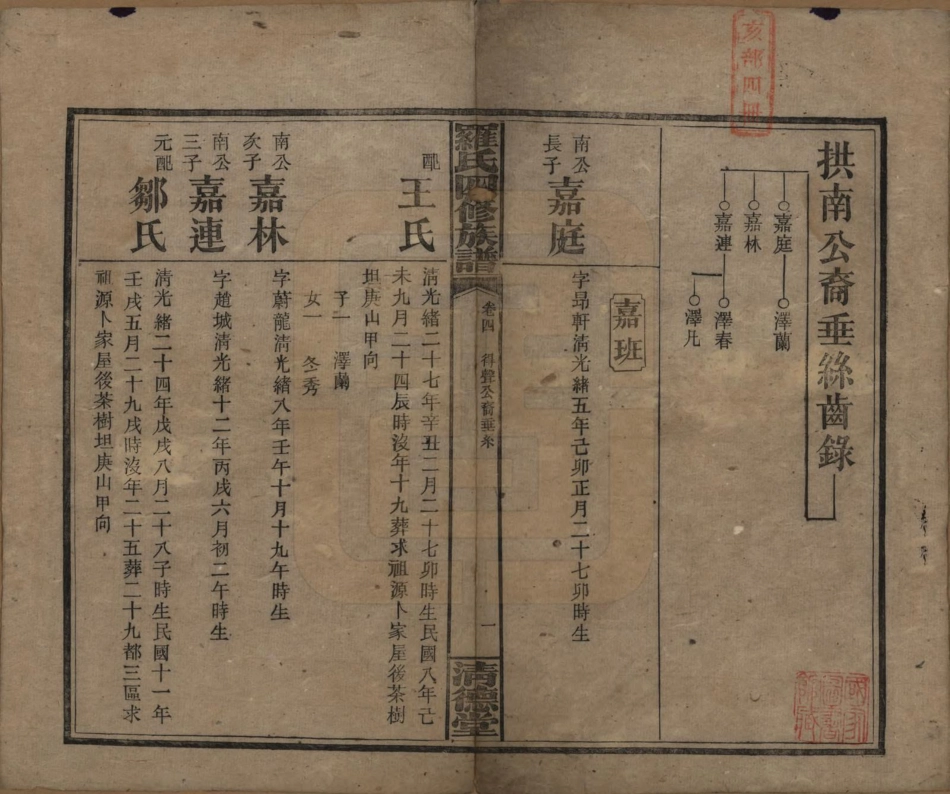 亥部四冊
拱南公裔垂絲齒錄
嘉庭 澤蘭
嘉林
嘉連 澤春
澤凡
嘉班
南公長子 嘉庭 字昻軒淸光緒五年己卯正月二十七卯時生
羅氏四修族譜 卷四 得聲公裔垂糸 一 淸德堂
配 王氏 淸光緒二十七年辛丑二月二十七卯時生民國八年己
未九月二十四辰時沒年十九葬求祖源卜家屋後茶樹
坦庚山甲向
子一 澤蘭
女一 冬秀
南公次子 嘉林 字蔚龍淸光緒八年壬午十月十九午時生
南公三子 嘉連 字趙城淸光緒十二年丙戌六月初二午時生
元配 鄒氏 淸光緒二十四年戊戌八月二十八子時生民國十一年
壬戌五月二十九戌時沒年二十五葬二十九都三區求
祖源卜家屋後茶樹坦庚山甲向